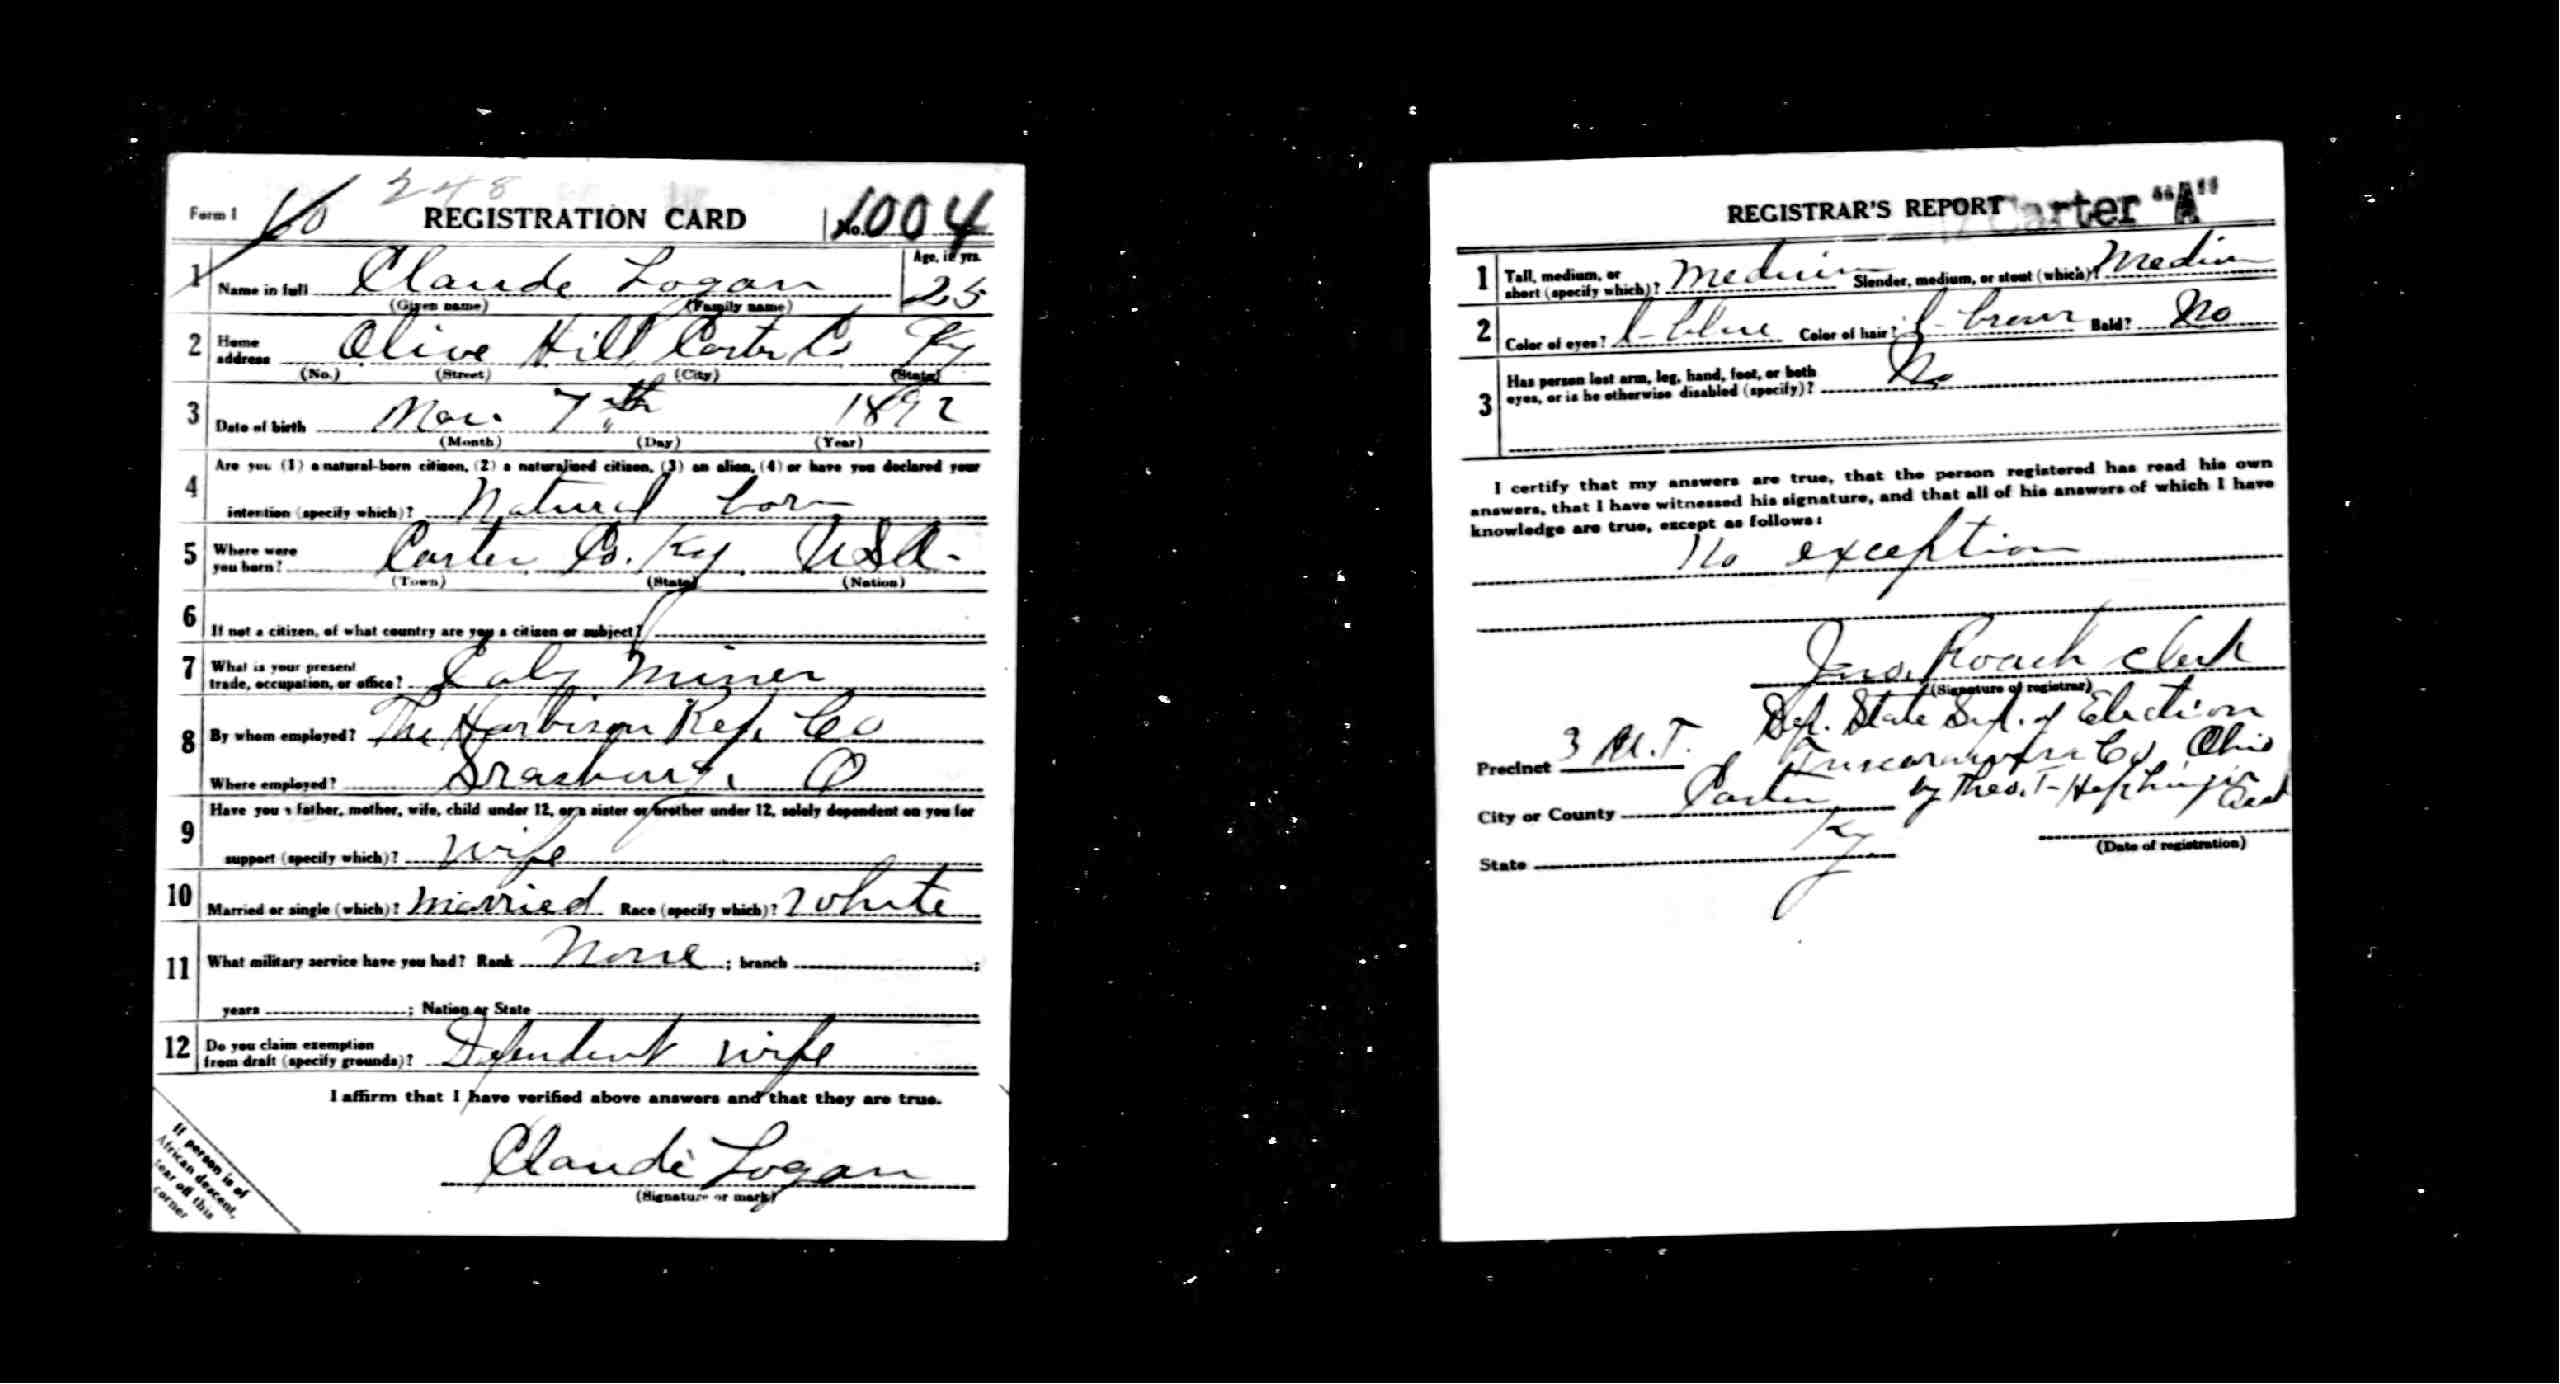 248
Form 1 REGISTRATION CARD No. 1004
1 Name in full Claude Logan Age, in yrs. 25
(Given name) (Family name)
2 Home address Olive Hill Carter Co Ky
(No.) (Street) (City) (State)
3 Date of birth Mar. 7th 1892
(Month) (Day) (Year)
4 Are you (1) a natural-born citizen, (2) a naturalized citizen, (3) an alien, (4) or have you declared your
intention (specify which)? Natural born
5 Where were you born? Carter Co. Ky USA.
(Town) (State) (Nation)
6 If not a citizen, of what country are you a citizen or subject?
7 What is your present trade, occupation, or office? Miner
8 By whom employed? The Harbison Ref. Co
Where employed? O
9 Have you a father, mother, wife, child under 12, or a sister or brother under 12, solely dependent on you for
support (specify which)? Wife
10 Married or single (which)? Married Race (specify which)? White
11 What military service have you had? Rank None ; branch ;
years ; Nation or State
12 Do you claim exemption from draft (specify grounds)? Dependent wife
I affirm that I have verified above answers and that they are true.
Claude Logan
(Signature or mark)
If person is of
African descent,
tear off this
corner
REGISTRAR'S REPORT Carter "A"
1 Tall, medium, or short (specify which)? Medium Slender, medium, or stout (which)? Medium
2 Color of eyes? l-blue Color of hair? l-brown Bald? No
3 Has person lost arm, leg, hand, foot, or both
eyes, or is he otherwise disabled (specify)? No
I certify that my answers are true, that the person registered has read his own
answers, that I have witnessed his signature, and that all of his answers of which I have
knowledge are true, except as follows:
No exception
Jno. Roach Clerk
(Signature of registrar)
Dep. State Supt. of Election
Precinct 3 Tuscarawas Co, Ohio
City or County Carter by Theo. T.
State Ky
(Date of registration)